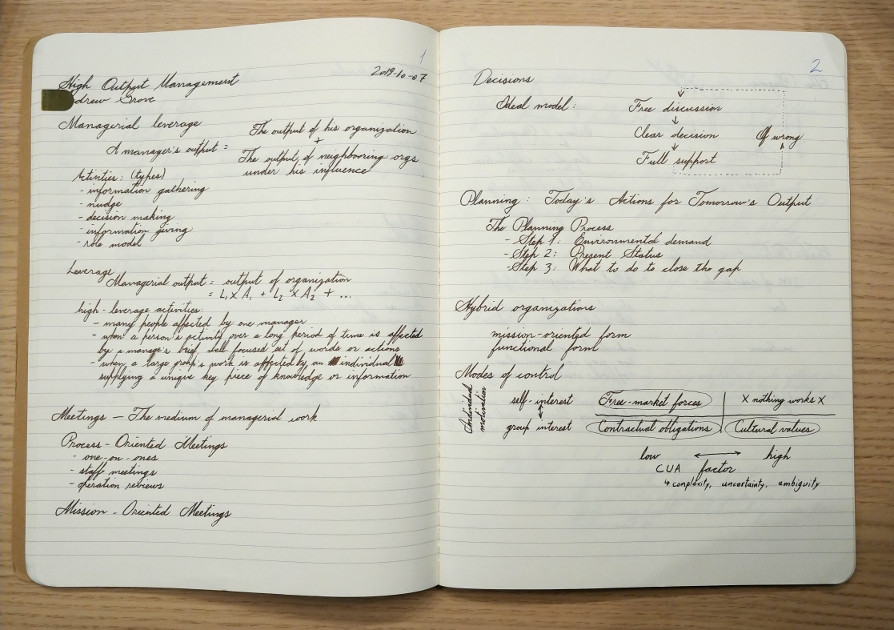 1
2019-10-07
High Output Management
drew Grove
Managerial leverage
A manager's output =
The output of his organization
+
The output of neighbouring orgs
under his influence
Activities: (types)
- information gathering
- nudge
- decision making
- information giving
- role model
Leverage
Managerial output = output of organization
= L₁ x A₁ + L₂ x A₂ + ...
high-leverage activities
- many people affected by one manager
- when a person's activity over a long period of time is affected
by a manager's brief, well focused set of words or actions
- when a large group's work is affected by an individual
supplying a unique key piece of knowledge or information
Meetings — The medium of managerial work
Process-Oriented Meetings
- one-on-ones
- staff meetings
- operation reviews
Mission-Oriented Meetings
2
Decisions
Ideal model:
Free discussion
↓
Clear decision
If wrong
↓
Full support
Planning: Today's Actions for Tomorrow's Output
The Planning Process
- Step 1: Environmental demand
- Step 2: Present Status
- Step 3: What to do to close the gap
Hybrid organizations
mission-oriented form
functional form
Modes of control
Individual
motivation
self-interest
Free-market forces
X nothing works X
group interest
Contractual obligations
Cultural values
low ⟷ high
CUA factor
↳ complexity, uncertainty, ambiguity